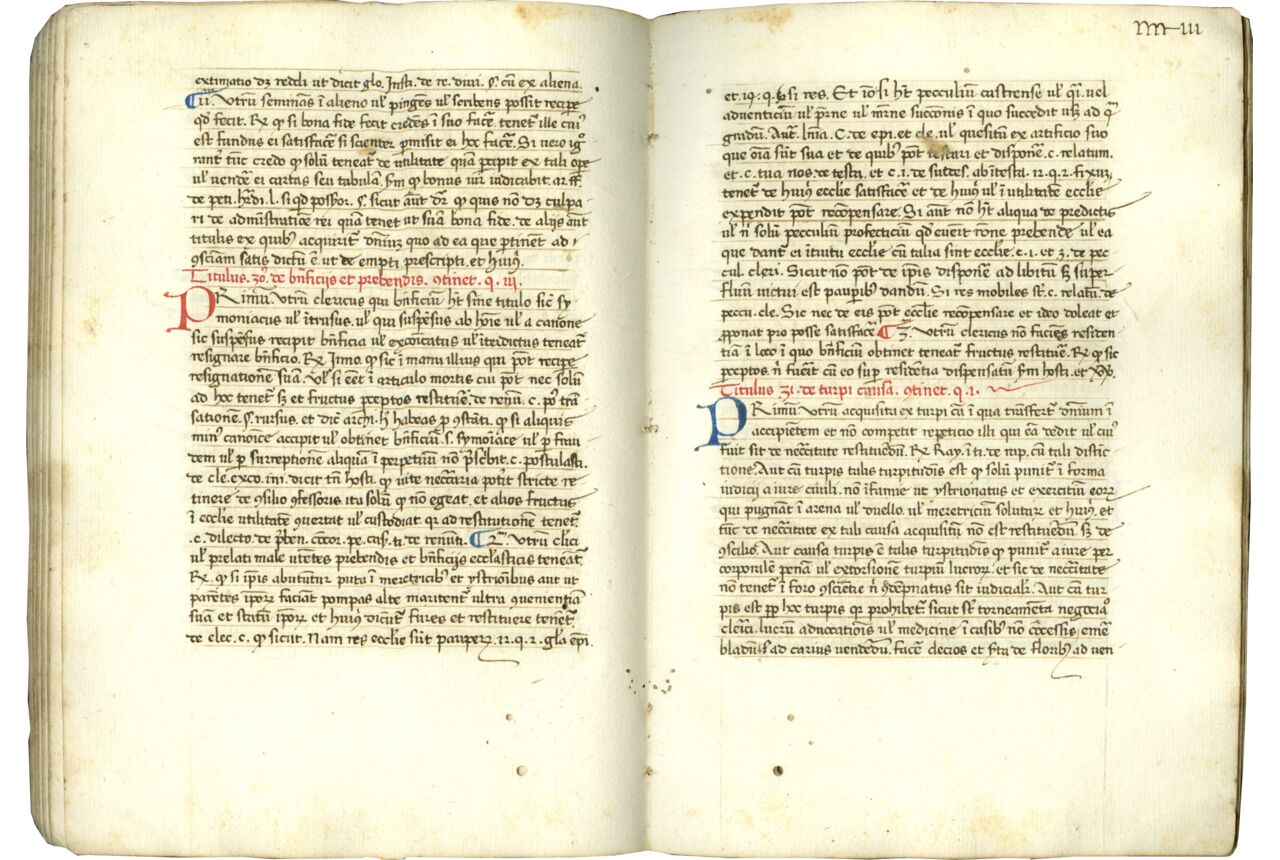 extimatio dʒ reddi ut dicit glo. Insti. de re. divi. §. cū ex aliena.
¶ 11. Utrū seminans ī alieno ul' pingens ul' scribens possit recipe
qd fecit. Rx̄ ꝙ si bona fide fecit credēs ī suo facē. tenet ille cuiꝰ
est fundus ei satisfacē si scienter ꝑmisit ei hoc facē. Si vero igo
rant tūc credo ꝙ solū teneat de utilitate quā ꝑcipit ex tali ope
ul' vendē ei cartas seu tabulā. fm ꝙ bonus iur iudicabit. ar. ff.
de peti. hrdi. l. si qd possor. §. sicut aūt dr̄ ꝙ quis nō dʒ culpa
ri de administratiōe rei quā tenet ut suā bona fide. de alijs aūt
titulis ex quibꝰ acquirit dn̄iuʒ quo ad ea que ꝑtinet ad
ꝯsciam satis dictū ē. ut de empti. prescripti. et huiꝰ.
Titulus. 30. de bn̄ficijs et prebendis. ꝯtinet. q. iii.
PRimū. Utrū clericus qui bn̄ficiū ht̄ sine titulo sic sy
moniacus ul' ītrusus. ul' qui suspēsus ab hoīe ul' a canone
sic suspēsus recipit bn̄ficia ul' excōicatus ul' īterdictus teneat
resignare bn̄ficio. Rx̄. Immo. ꝙ sic ī manu illius qui pōt recipe
resignationē suā. Ul' si eēt ī articulo mortis cui pōt nec solū
ad hoc tenet sʒ et fructus ꝑceptos restituē. de renū. c. pꝰ trā
sationē. §. rursus. et dic̄ archi. h̄ habeas ꝑ ꝯstāti. ꝙ si aliquis
minꝰ canonice accipit ul' obtinet bn̄ficiū. s. symoīace ul' ꝑ frau
dem ul' ꝑ surreptionē aliquā ī perpetuū nō p̄scbit. c. postulasti.
de cle. exco. mi. dicit tn̄ hosti. ꝙ vite nec̄caria potit stricte re
tinere de ꝯsilio ꝯfessoris. ita solū ꝙ nō egeat. et alios fructus
ī ecclie utilitatē ꝯvertat ul' custodiat. qr ad restitutionē tenet.
c. dilecto de p̄ben. ti. de renūti. ¶ 2m. Utrū clici
ul' prelati male utētes prebendis et bn̄ficijs eccl'asticis teneat.
Rx̄. ꝙ si ip̄is abutūtur puta ī meretricibꝰ et ystrionibus aut ut
parētes ip̄oꝝ faciant pompas alte maritent ultra ꝯuenientiā
suā et statū ip̄oꝝ et huiꝰ dicūt fures et restituere tenet.
de elec. c. ꝙ sicut. Nam res ecclie sūt pauperꝝ. 12. q. 2. gl'a epi.
et. 19. q. si res. Et iō si ht̄ pecculiū castrense ul' q̄. vel
adventiciū ul' pr̄ne ul' mr̄ne succōnis ī quo succedit usʒ ad q̄
gradū. Aut. C. de epi. et cle. ul' quesitū ex artificio suo
que oīa sūt sua et de quibꝰ pōt testari et disponē. c. relatum.
et. c. tua nos. de testa. et c. 1. de succes. ab ītesta. 12. q. 2. fixuʒ
tenet de huiꝰ ecclie satisfacē et de huiꝰ ul' ī utilitatē ecclie
expendit pōt recōpensare. Si aūt nō ht̄ aliqua de predictis
ul' n̄ solū pecculiū profecticiū qd evēit rōne prebende ul' ea
que dant ei ītuitu ecclie cū talia sint ecclie. c. 1. et. 3. de pec
cul. cleri. Sicut nō pōt de ip̄is disponē ad libitū sʒ super
fluū victui est pauꝑibꝰ dandū. Si res mobiles st. c. relatū. de
peccu. cle. Sic nec de eis pōt ecclie recōpensare et ideo doleat et
ꝓponat pro posse satisfacē. ¶ 3. Utrū clericus nō faciēs residen
tiā ī loco ī quo bn̄ficiū obtinet teneat fructus restituē. Rx̄ ꝙ sic
ꝑceptos. n̄ fuerit cū eo sup̄ residētia dispensatū fm hosti. et
Titulus 31. de turpi causa. ꝯtinet. q. 1.
PRimū. Utrū acquisita ex turpi cā ī qua trāsfert dn̄ium ī
accipiētem et nō competit repeticio illi qui eā dedit ul' cuiꝰ
fuit sit de nec̄citate restituēdū. Rx̄ Ray. ī ti. de rap. cū tali distīc
tione. Aut cā turpis talis turpitudīs est ꝙ solū punit ī forma
iudicij a iure civili. nō īfamie ut ystrionatus et exercitiū eoꝝ
qui pugnāt ī arena ul' duello. ul' meretriciū solutaꝝ et huiꝰ. et
tūc de nec̄citate ex tali causa acquisitū nō est restituēdū sʒ de
ꝯsilio. Aut causa turpis ē talis turpitudīs ꝙ punit a iure per
corporalē penā ul' extorsionē turpiū lucroꝝ. et sic de nec̄citate
nō tenet ī foro ꝯscientie n̄ ꝯdēpnatus sit iudicialr̄. Aut cā tur
pis est ꝓp hoc turpis qr prohibet sicut st̄ torneamēta negociaꝰ
cleīci lucrū aduocatiōis ul' medicine ī casibꝰ nō cōcessis. emē
bladū ad carius vendēdū. facē decios et s̄ta de floribꝰ ad ven